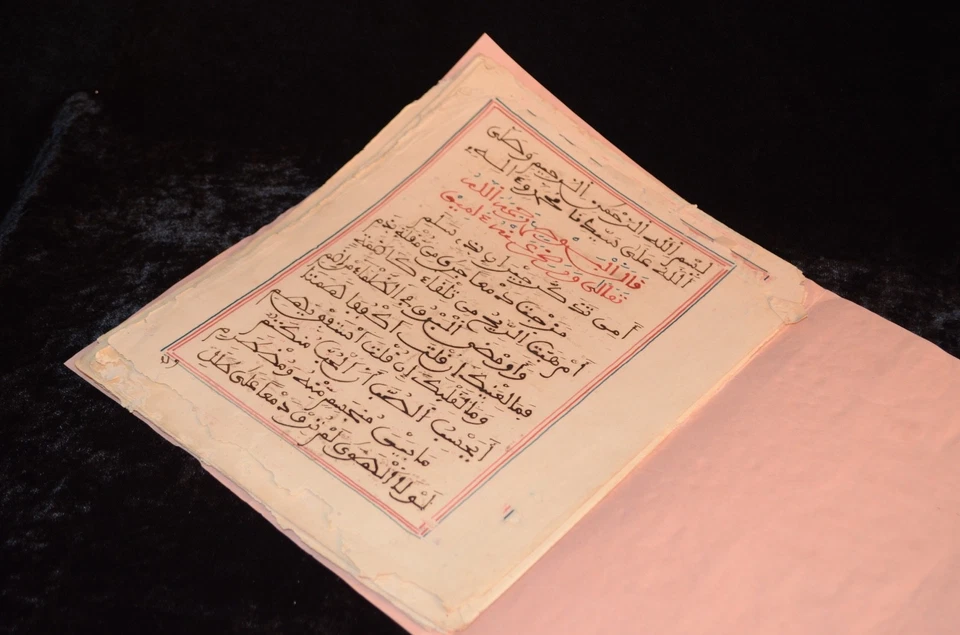 بسم الله الرحمن الرحيم وصلى
الله على سيدنا محمد وءاله
قال رحمه الله
تعالى ورضي عنه ءامين
أمن تذكر جيران بذي سلم
مزجت دمعا جرى من مقلة بدم
أم هبت الريح من تلقاء كاظمة
وأومض البرق في الظلماء من إضم
فما لعينيك إن قلت اكففا همتا
وما لقلبك إن قلت استفق يهم
أيحسب الصب أن الحب منكتم
ما بين منسجم منه ومضطرم
لولا الهوى لم ترق دمعا على طلل